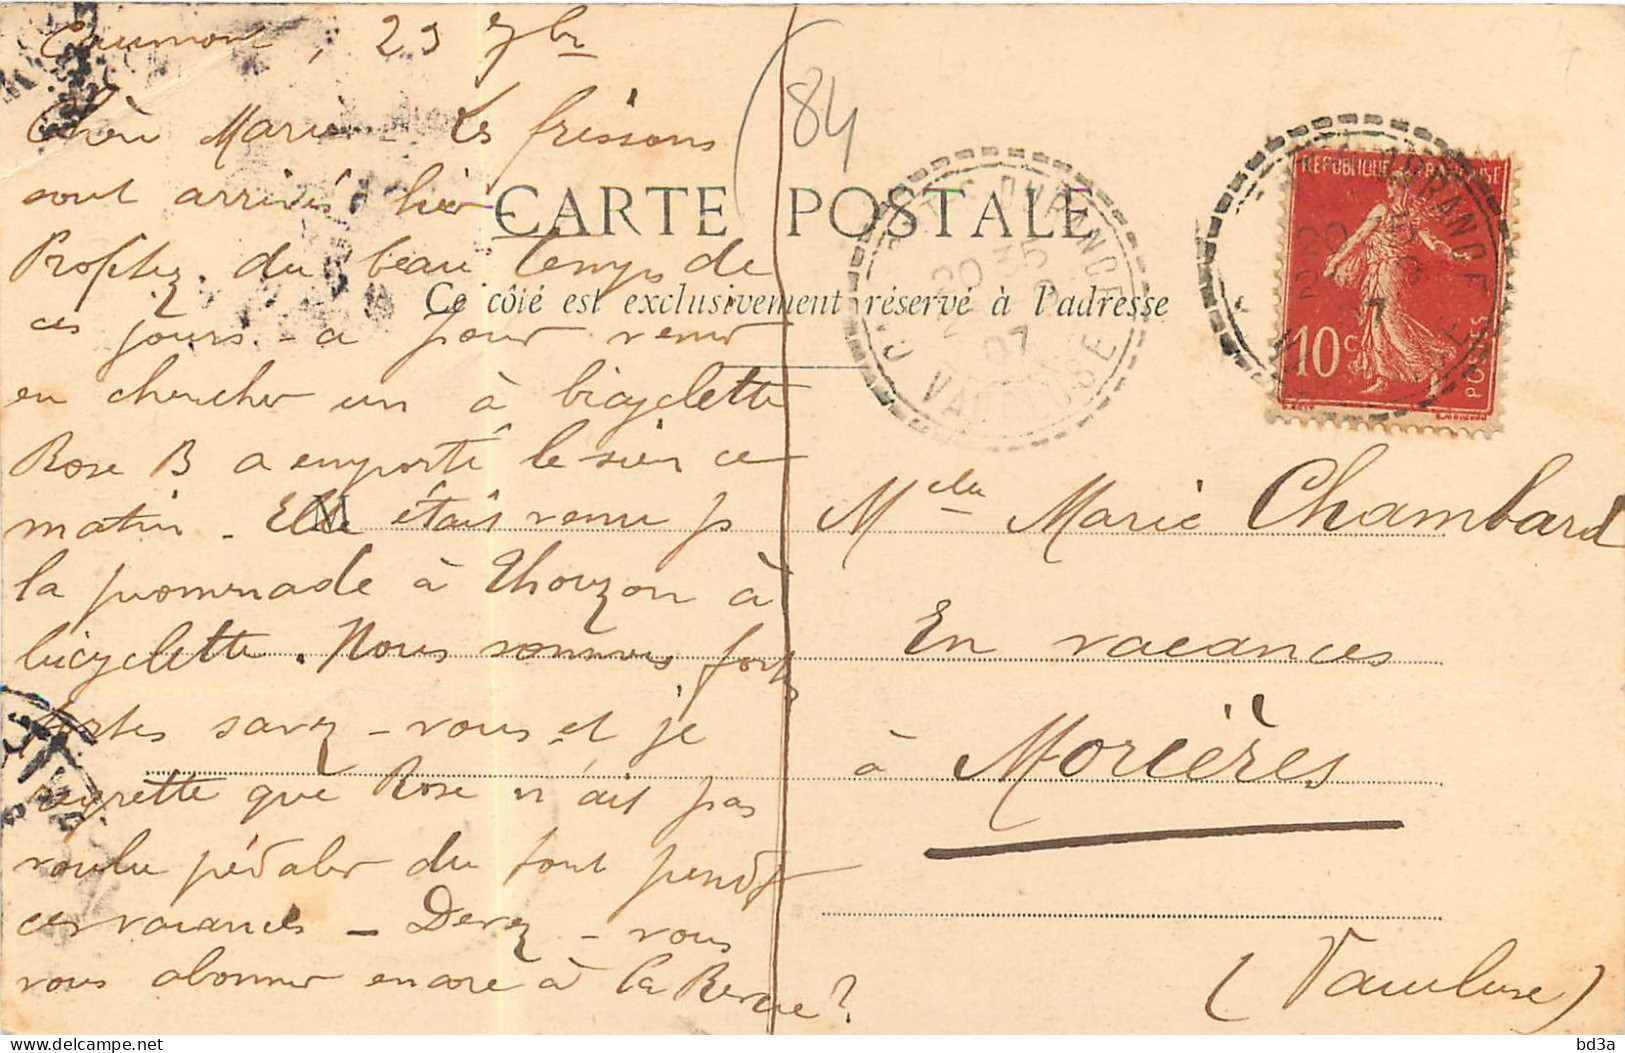 Caumont, 29 7bre
Chère Marie - Les frissons
sont arrivés hier -
Profitez du beau temps de
ces jours-ci pour venir
en chercher un à bicyclette
Rose B a emporté le sien ce
matin - Elle était venue p
la promenade à Thouzon à
bicyclette. Nous sommes fortes
fortes savez-vous et je
regrette que Rose n'ait pas
voulu pédaler du tout pendt
ces vacances - Devez-vous
vous abonner encore à la Revue ?
84
CARTE POSTALE
Ce côté est exclusivement réservé à l'adresse
DURANCE
20 35
07
VAUCLUSE
REPUBLIQUE FRANÇAISE
10c
POSTES
Melle Marie Chambard
En vacances
à Morières
(Vaucluse)
delcampe.net
bd3a